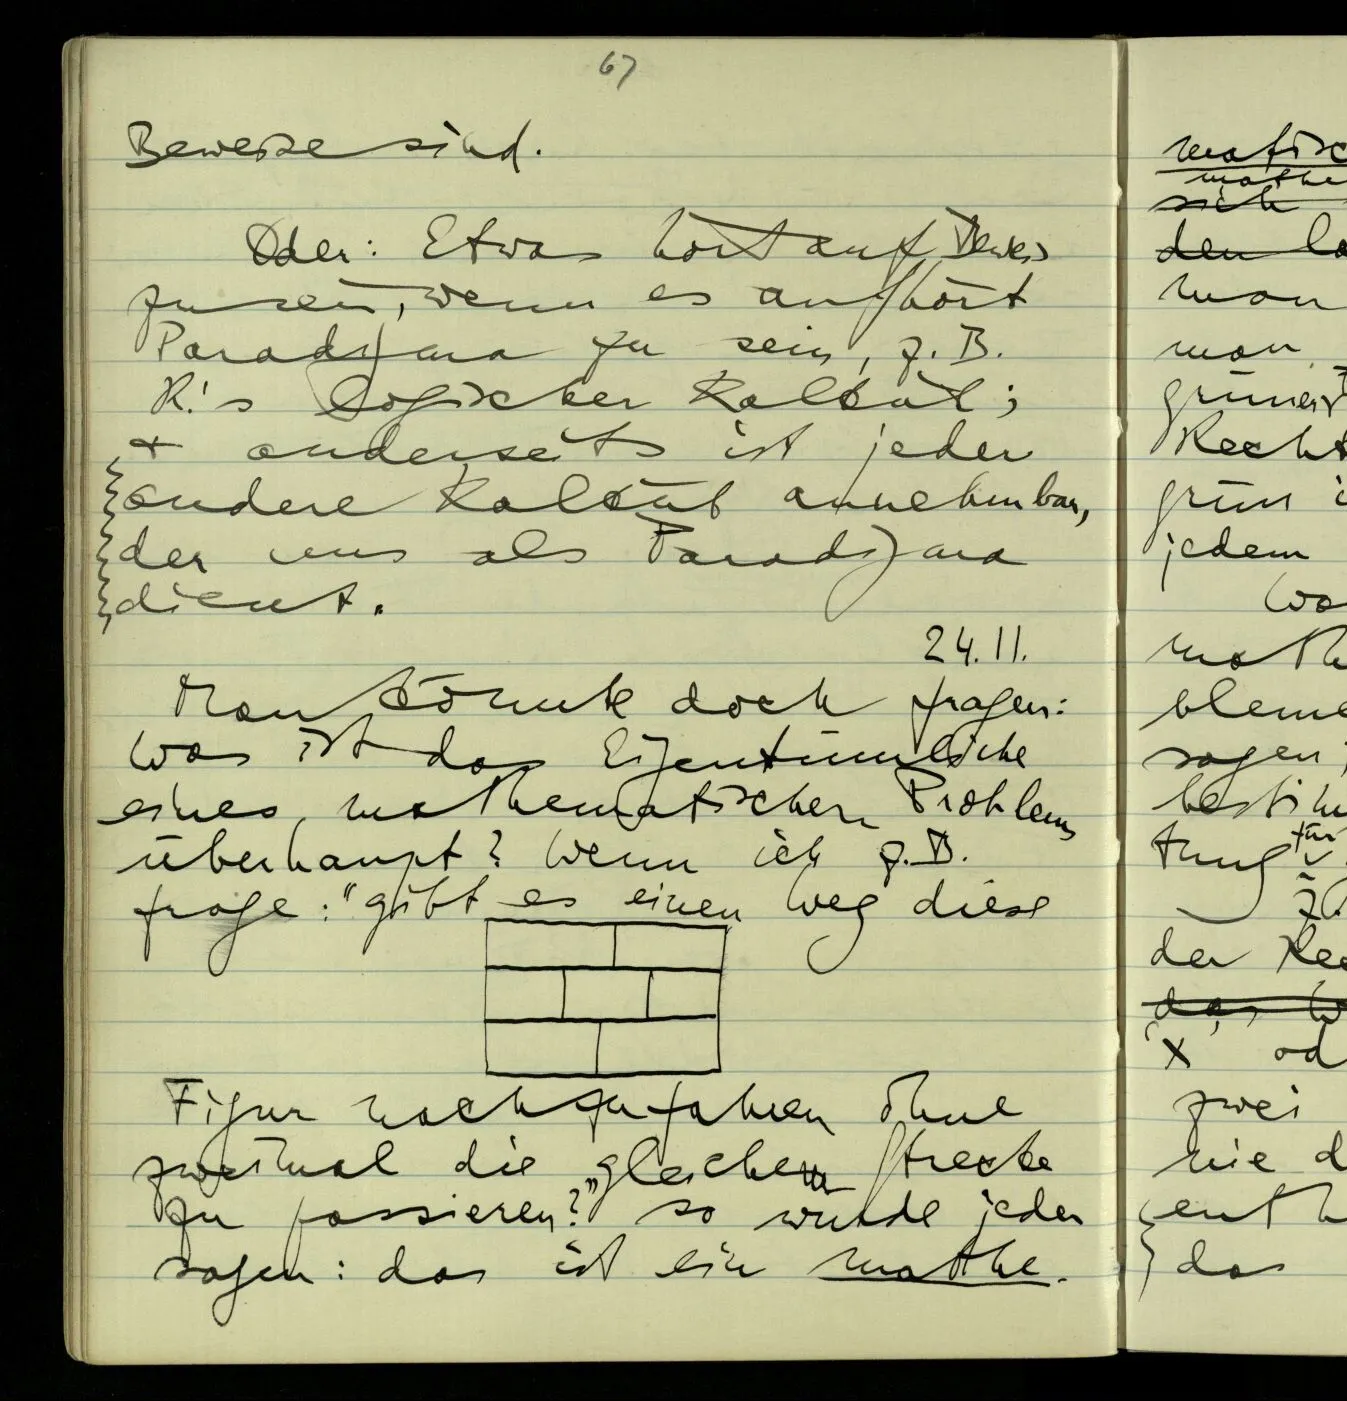 67
Beweise sind.
Oder: Etwas hört auf Beweis
zu sein, wenn es aufhört
Paradigma zu sein, z.B.
R.'s logischer Kalkül;
+ anderseits ist jeder
andere Kalkül annehmbar,
der uns als Paradigma
dient.
24.11.
Man könnte doch fragen:
Was ist das Eigentümliche
eines mathematischen Problems
überhaupt? Wenn ich z.B.
frage: "gibt es einen Weg diese
Figur nachzufahren ohne
zweimal die gleiche Strecke
zu passieren?" so würde jeder
sagen: das ist ein mathe-
matisc
mathe
sich
den
man
man
grünes
Recht
grün
jedem
math
bleme
sagen;
bestim
tung für
der Rec
das
'x' od
zwei
nie d
enth
das